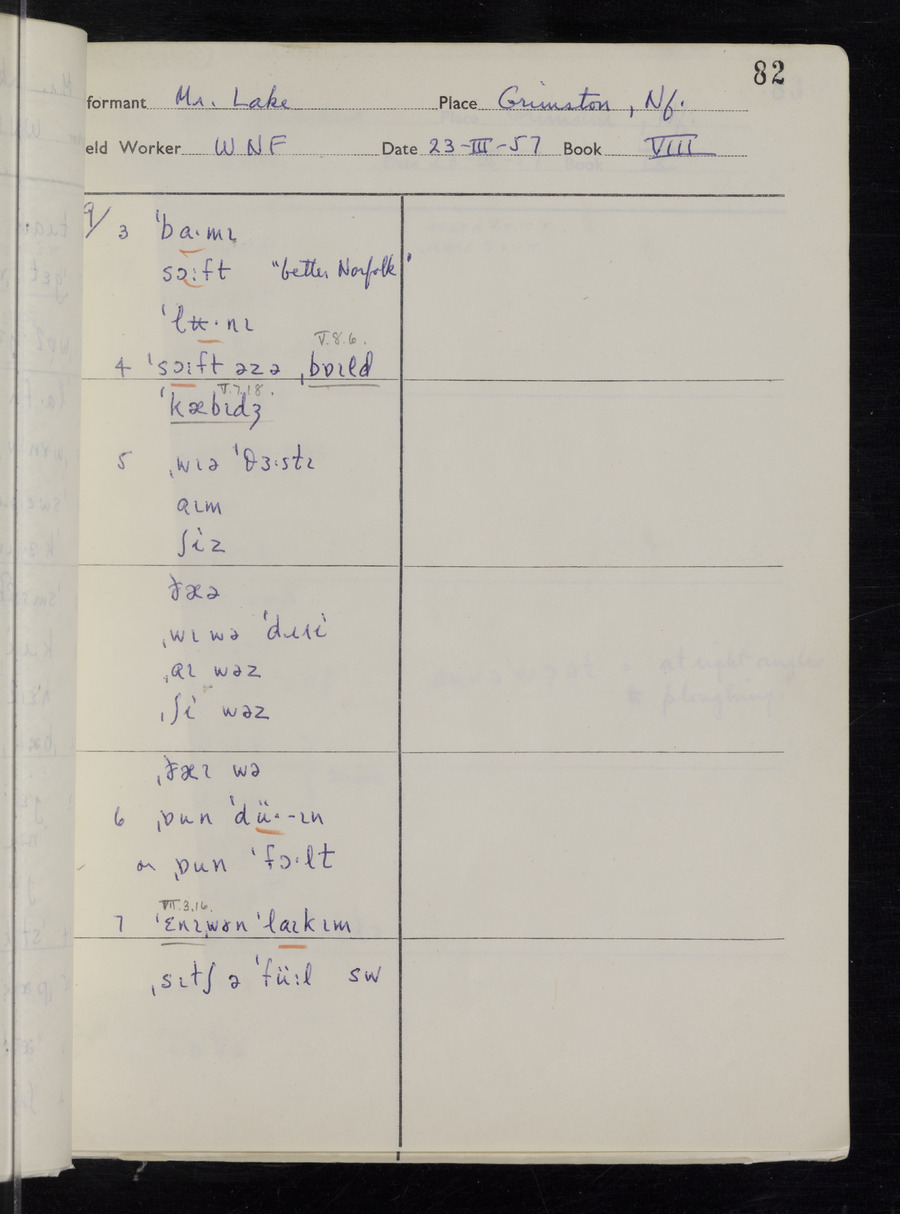 82
formant Mr. Lake Place Grimston, Nf.
eld Worker WNF Date 23-III-57 Book VIII
9/ 3 ˈbɑ·mɪ
sɔːft "better Norfolk"
ˈlʉ·nɪ
V.8.6.
4 ˈsɔɪft əzə ˌbɒɪld
V.7.18.
ˈkæbɪdʒ
5 ˌwɪə ˈθɜ·stɪ
ɑɪm
ʃiz
ðæə
ˌwɪ wə
ˌɑɪ wəz
ˌʃi wəz
ˌðæɪ wə
6 ˌɒun ˈdü·-ɪn
or ˌɒun ˈfɔ·lt
VII.3.16.
7 ˈɛnɪˌwən ˈlaɪkɪm
ˌsɪtʃ ə ˈfüːl sw